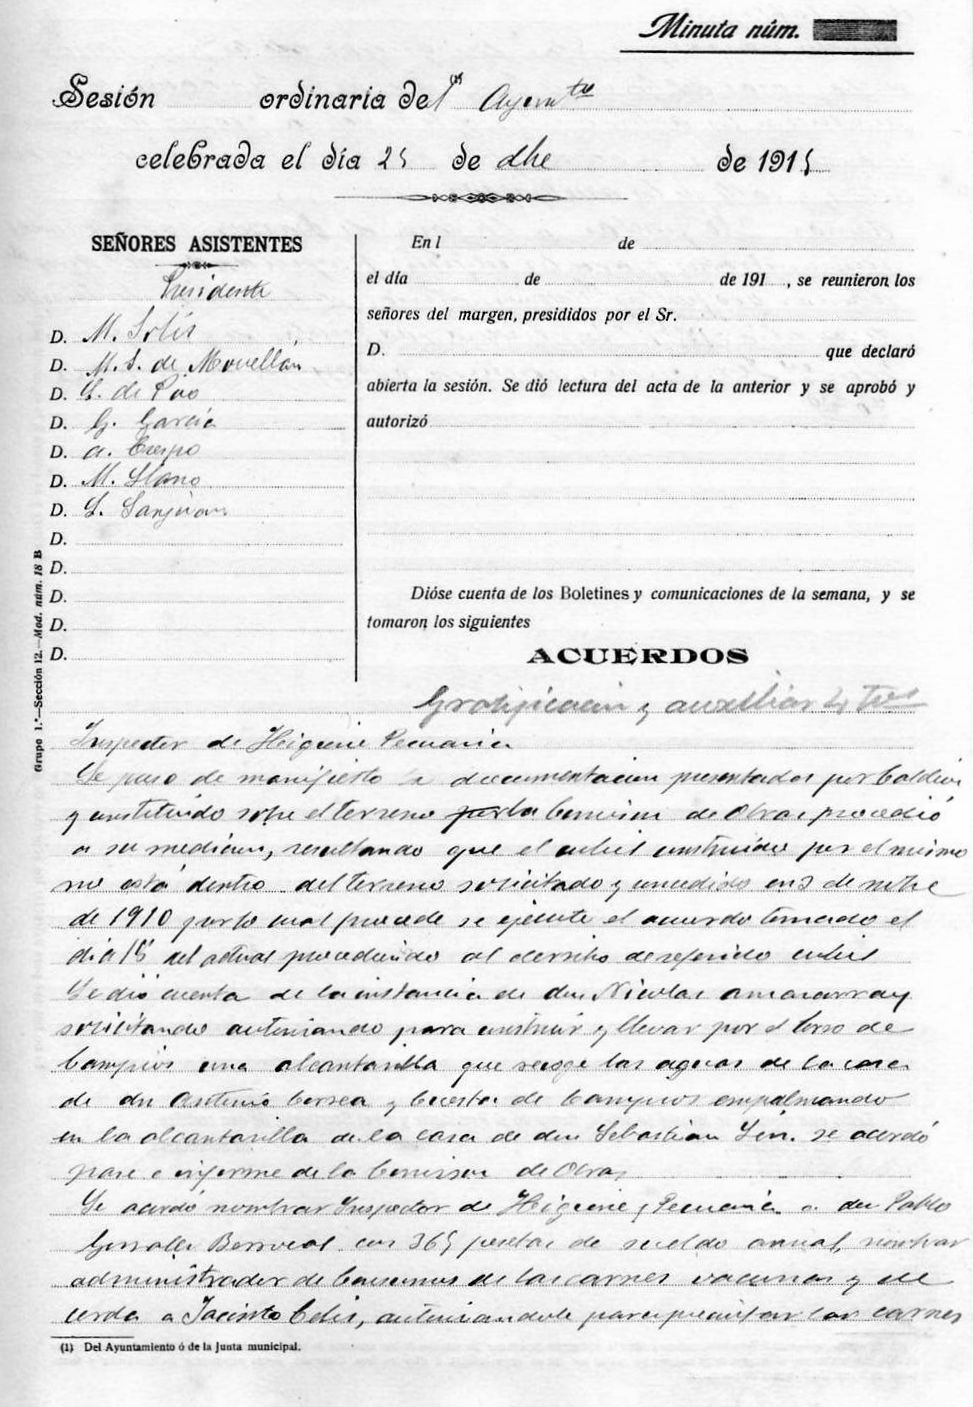 Minuta núm.
Sesión ordinaria del (1) Aymto
celebrada el día 25 de dbre de 1915
SEÑORES ASISTENTES
Presidente
D. M. Solís
D. M. S. de Movellán
D. S. de Poo
D. G. García
D. A. Crespo
D. M. Llano
D. S. Sanjuan
D.
D.
D.
D.
D.
En l de
el día de de 191 , se reunieron los
señores del margen, presididos por el Sr.
D. que declaró
abierta la sesión. Se dió lectura del acta de la anterior y se aprobó y
autorizó
Dióse cuenta de los Boletines y comunicaciones de la semana, y se
tomaron los siguientes
ACUERDOS
Gratificacion y auxiliar
Inspector de Higiene Pecuaria
Se puso de manifiesto la documentacion presentada por
y constituido sobre el terreno por la Comision de Obras procedió
a su medicion, resultando que el cubil construido por el mismo
no está dentro del terreno solicitado y concedido en 3 de nobre
de 1910 por lo cual procede se ejecute el acuerdo tomado el
dia 15 del actual procediendo al derribo de referido cubil
Se dió cuenta de la instancia de don Nicolas Amararray
solicitando autorizando para construir y llevar por el torso de
Campios una alcantarilla que recoge las aguas de la casa
de dn Antonio Correa y de Campios empalmando
en la alcantarilla de la casa de don Sebastian se acordó
pase a informe de la Comision de Obras
Se acordó nombrar Inspector de Higiene y Pecuaria a don Pablo
Gonzalez Berrocal con 365 pesetas de sueldo anual, nombrar
administrador de Consumos de las carnes vacunas y de
cerda a Jacinto Celis, autorizandole para precintar las carnes
Grupo 1.º—Sección 12.—Mod. núm. 18 B
(1) Del Ayuntamiento ó de la Junta municipal.